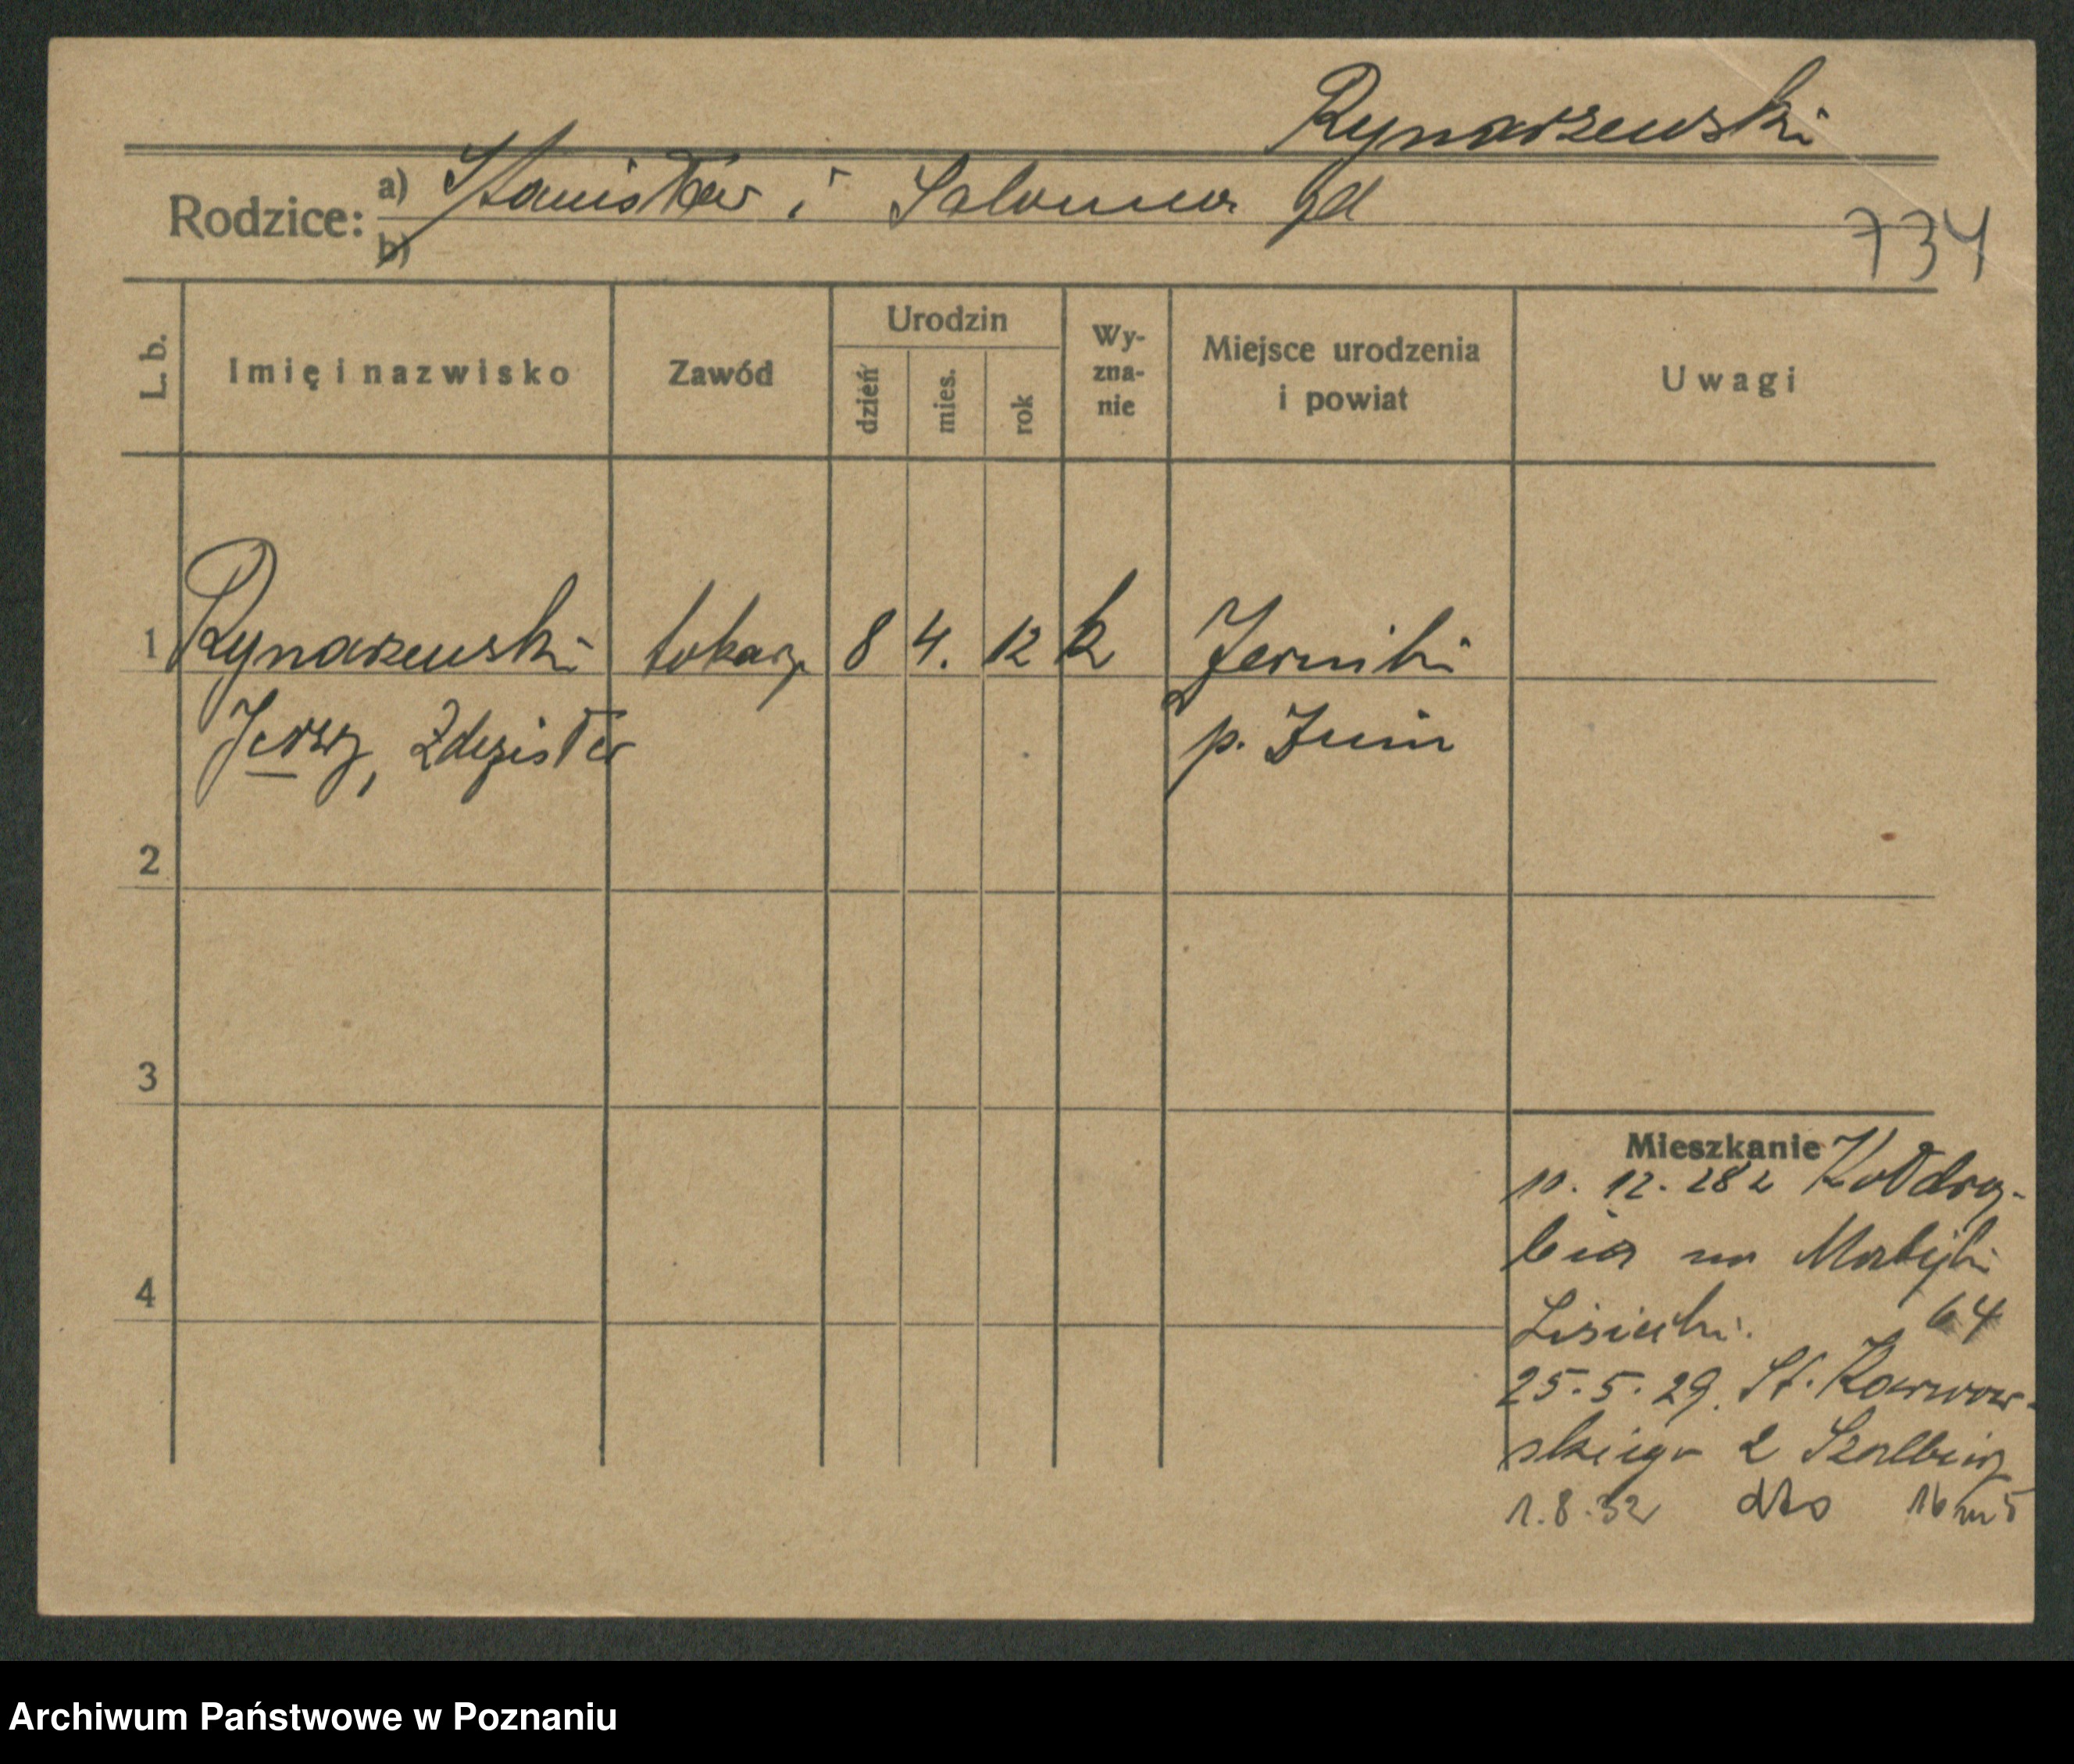 Rynarzewski
Rodzice: a) Stanisław i Salomea
b)
734
L. b. Imię i nazwisko Zawód Urodzin dzień mies. rok Wy-zna-nie Miejsce urodzenia i powiat Uwagi
1 Rynarzewski tokarz 8 4. 12 k
Jerzy, Zdzisław p. Żnin
2
3
4
Mieszkanie
10. 12. 28 z Kołdrą-
bia na Małejki
Lisiecki. 64
25. 5. 29. St. Karwow-
skiego 2 Szalbierz
1. 8. 32 dto 16 m 5
Archiwum Państwowe w Poznaniu